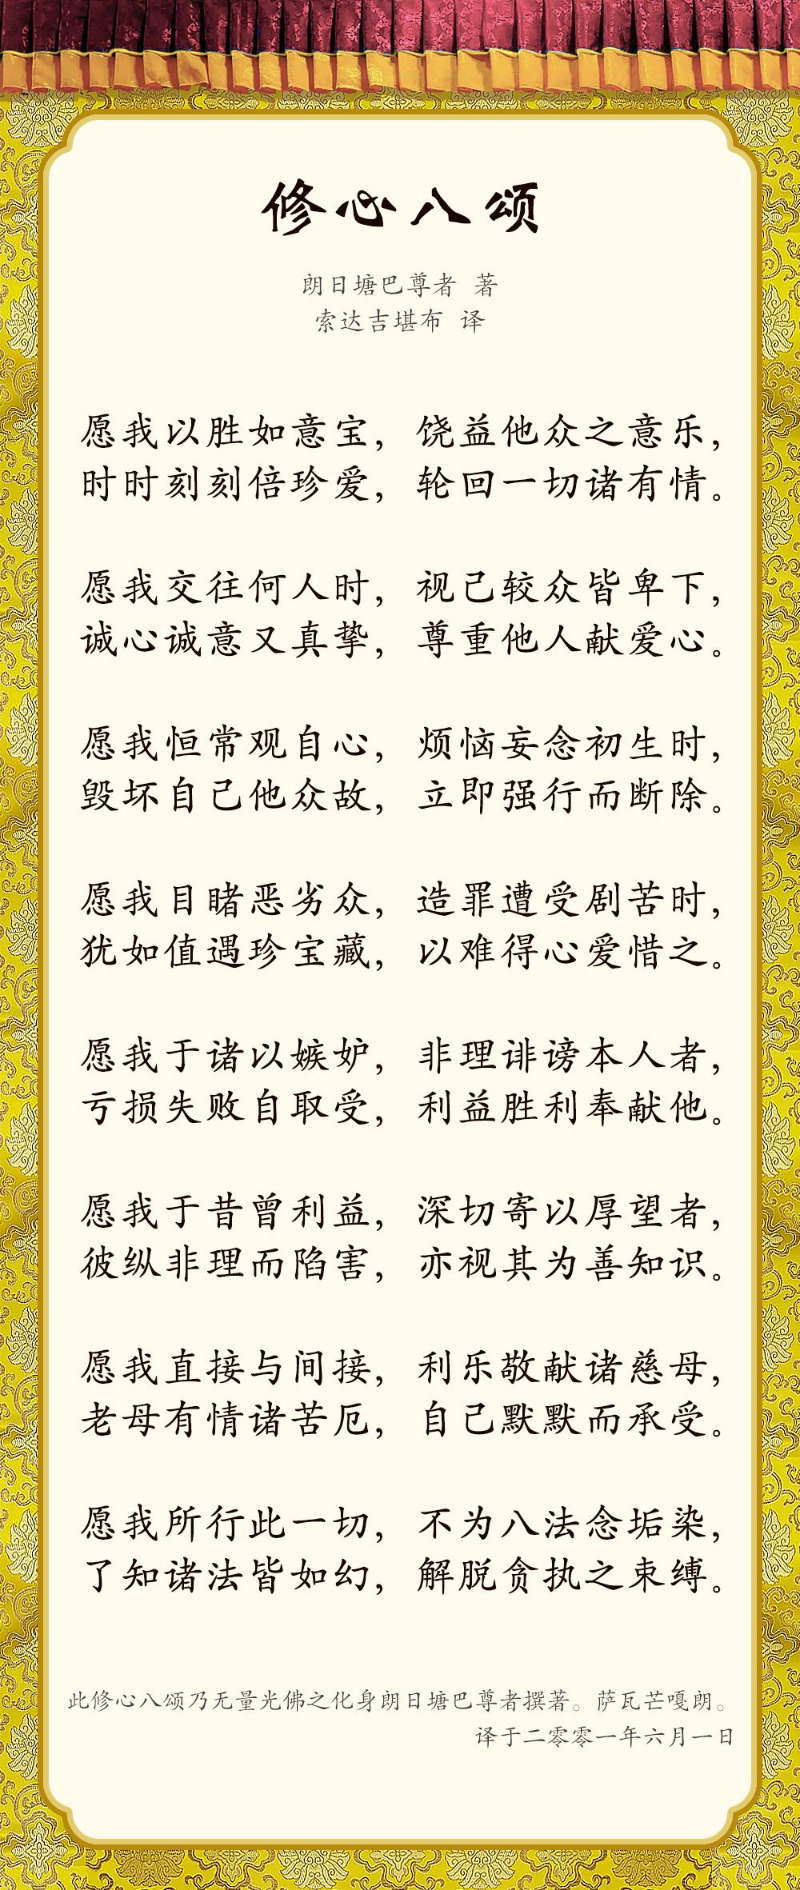 修心八颂
朗日塘巴尊者 著
索达吉堪布 译
愿我以胜如意宝，饶益他众之意乐，
时时刻刻倍珍爱，轮回一切诸有情。
愿我交往何人时，视己较众皆卑下，
诚心诚意又真挚，尊重他人献爱心。
愿我恒常观自心，烦恼妄念初生时，
毁坏自己他众故，立即强行而断除。
愿我目睹恶劣众，造罪遭受剧苦时，
犹如值遇珍宝藏，以难得心爱惜之。
愿我于诸以嫉妒，非理诽谤本人者，
亏损失败自取受，利益胜利奉献他。
愿我于昔曾利益，深切寄以厚望者，
彼纵非理而陷害，亦视其为善知识。
愿我直接与间接，利乐敬献诸慈母，
老母有情诸苦厄，自己默默而承受。
愿我所行此一切，不为八法念垢染，
了知诸法皆如幻，解脱贪执之束缚。
此修心八颂乃无量光佛之化身朗日塘巴尊者撰著。萨瓦芒嘎朗。
译于二零零一年六月一日